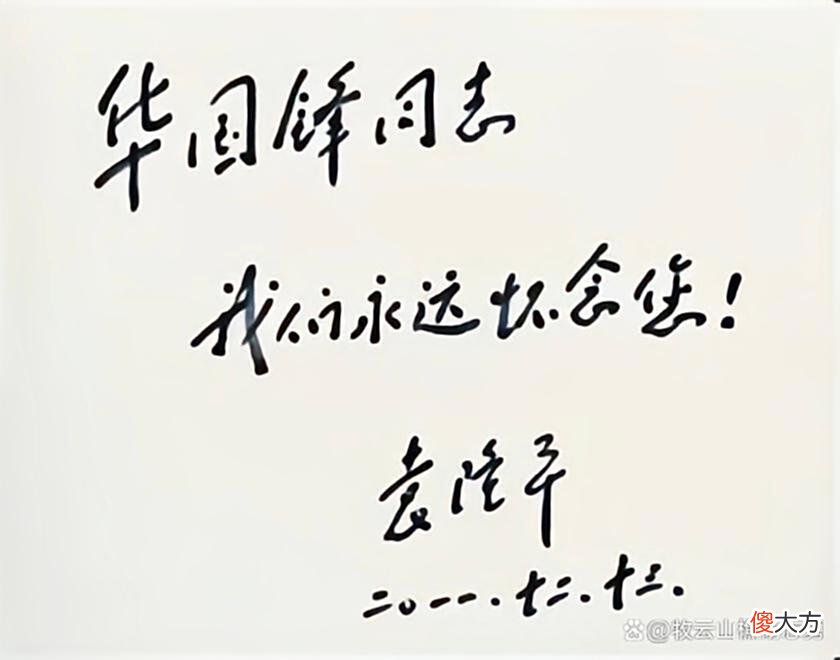 华国锋同志
我们永远怀念您!
袁隆平
二〇一一.十二.十三.
@牧云山
傻大方